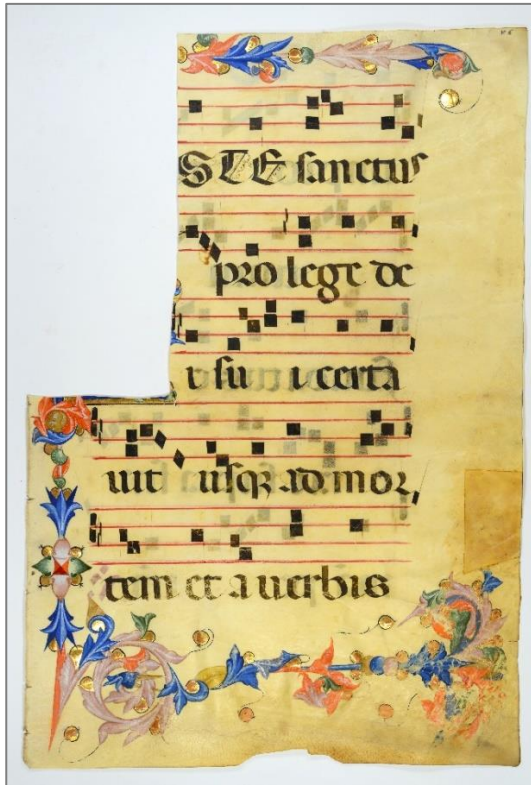 STE sanctus
pro lege de
i su i certa
uit usq; ad mor
tem et a uerbis